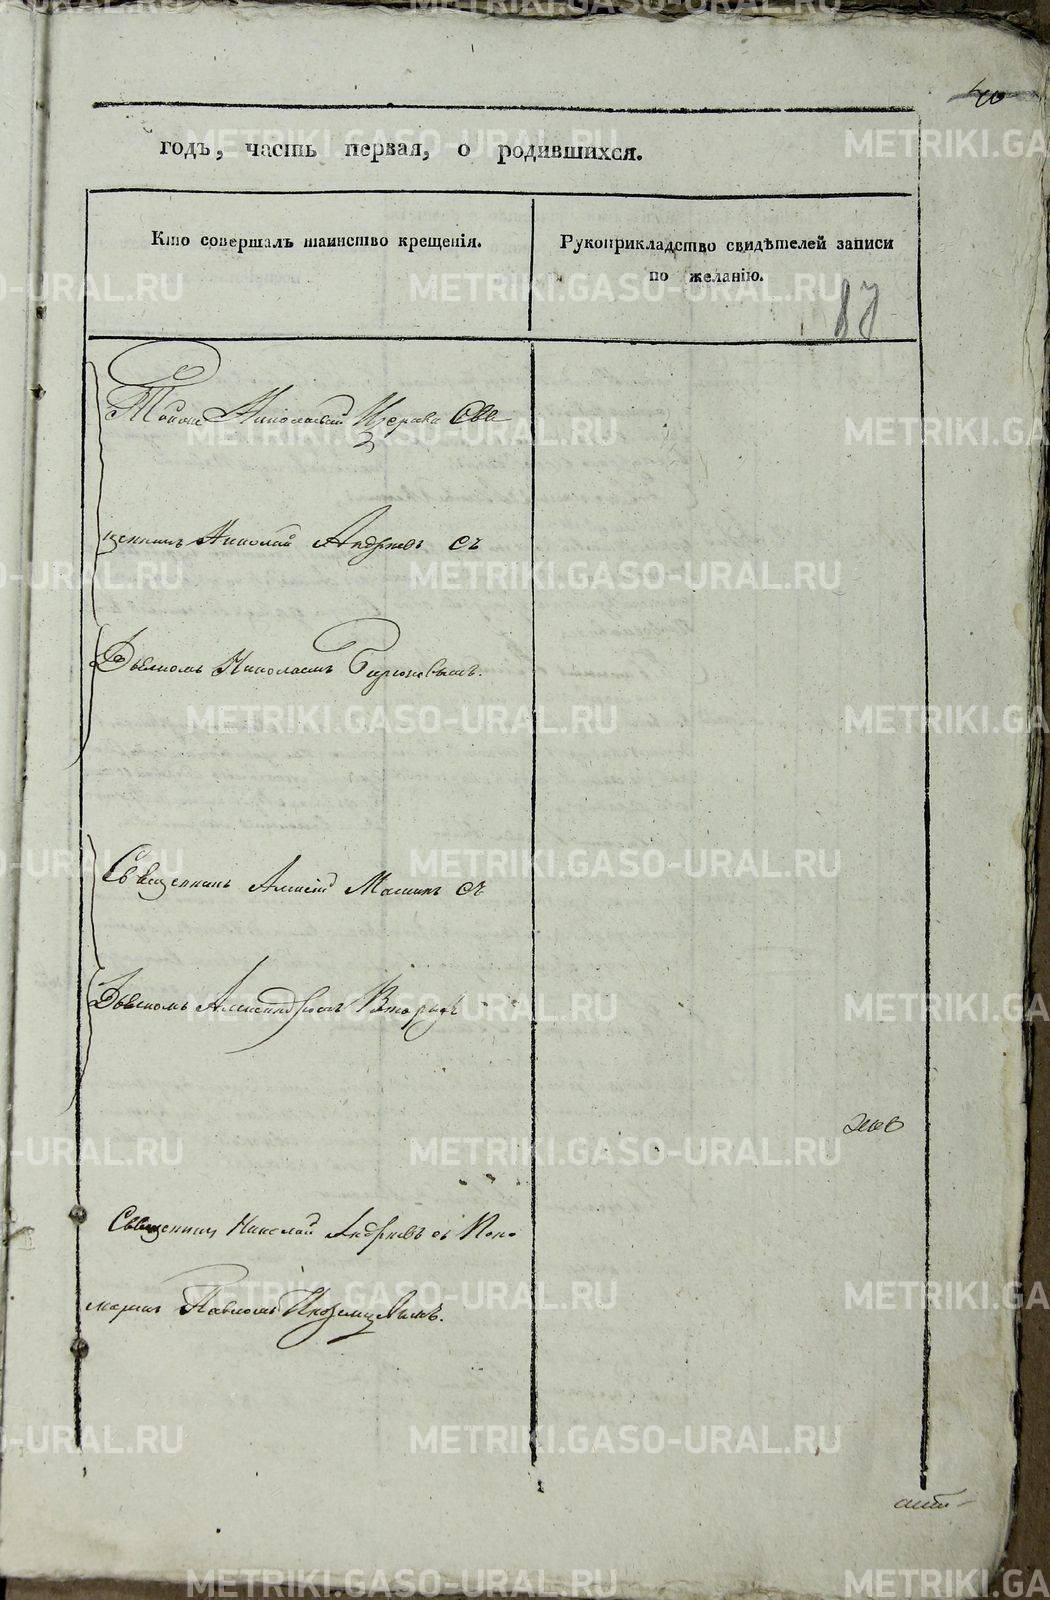 годъ, часть первая, о родившихся.
Кто совершалъ таинство крещенія.
Рукоприкладство свидѣтелей записи
по желанію.
87
Тойже Николаевской Церкви Свя
щенникъ Николай Андреевъ съ
Дьякомъ Николаемъ Бирюковымъ.
Священникъ Алексѣй Машинъ съ
Дьякомъ Александромъ
Священникъ Николай Андреевъ съ Поно
маремъ Павломъ Иноземцовымъ.
METRIKI.GASO-URAL.RU